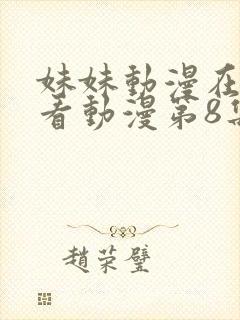 妹妹動漫在
看動漫第8集
趙荣璧